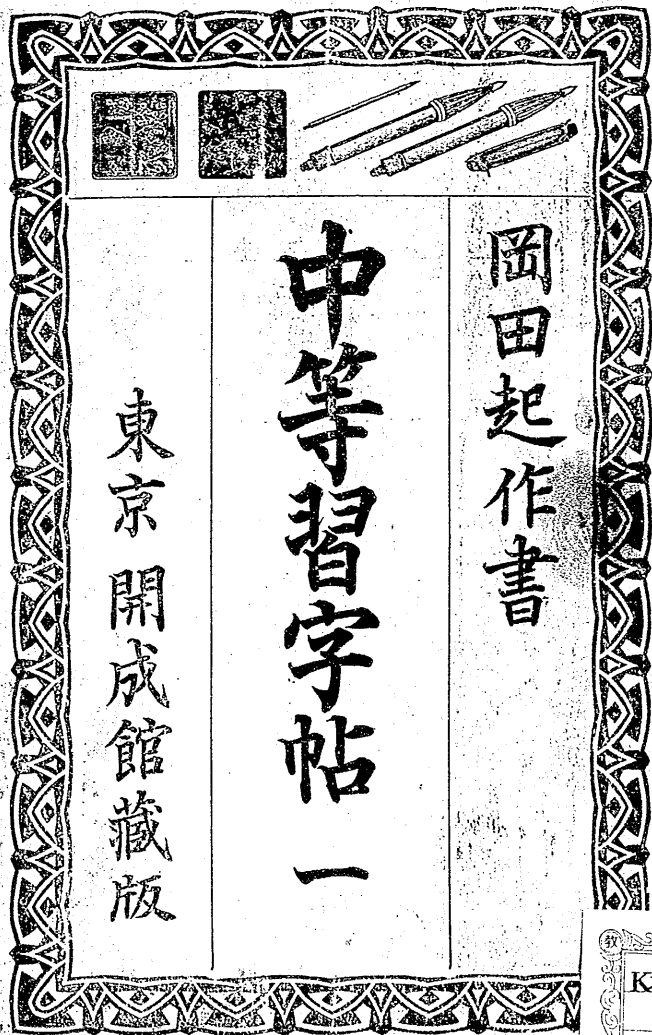 岡田起作書
中等習字帖 一
東京 開成館藏版
教
K